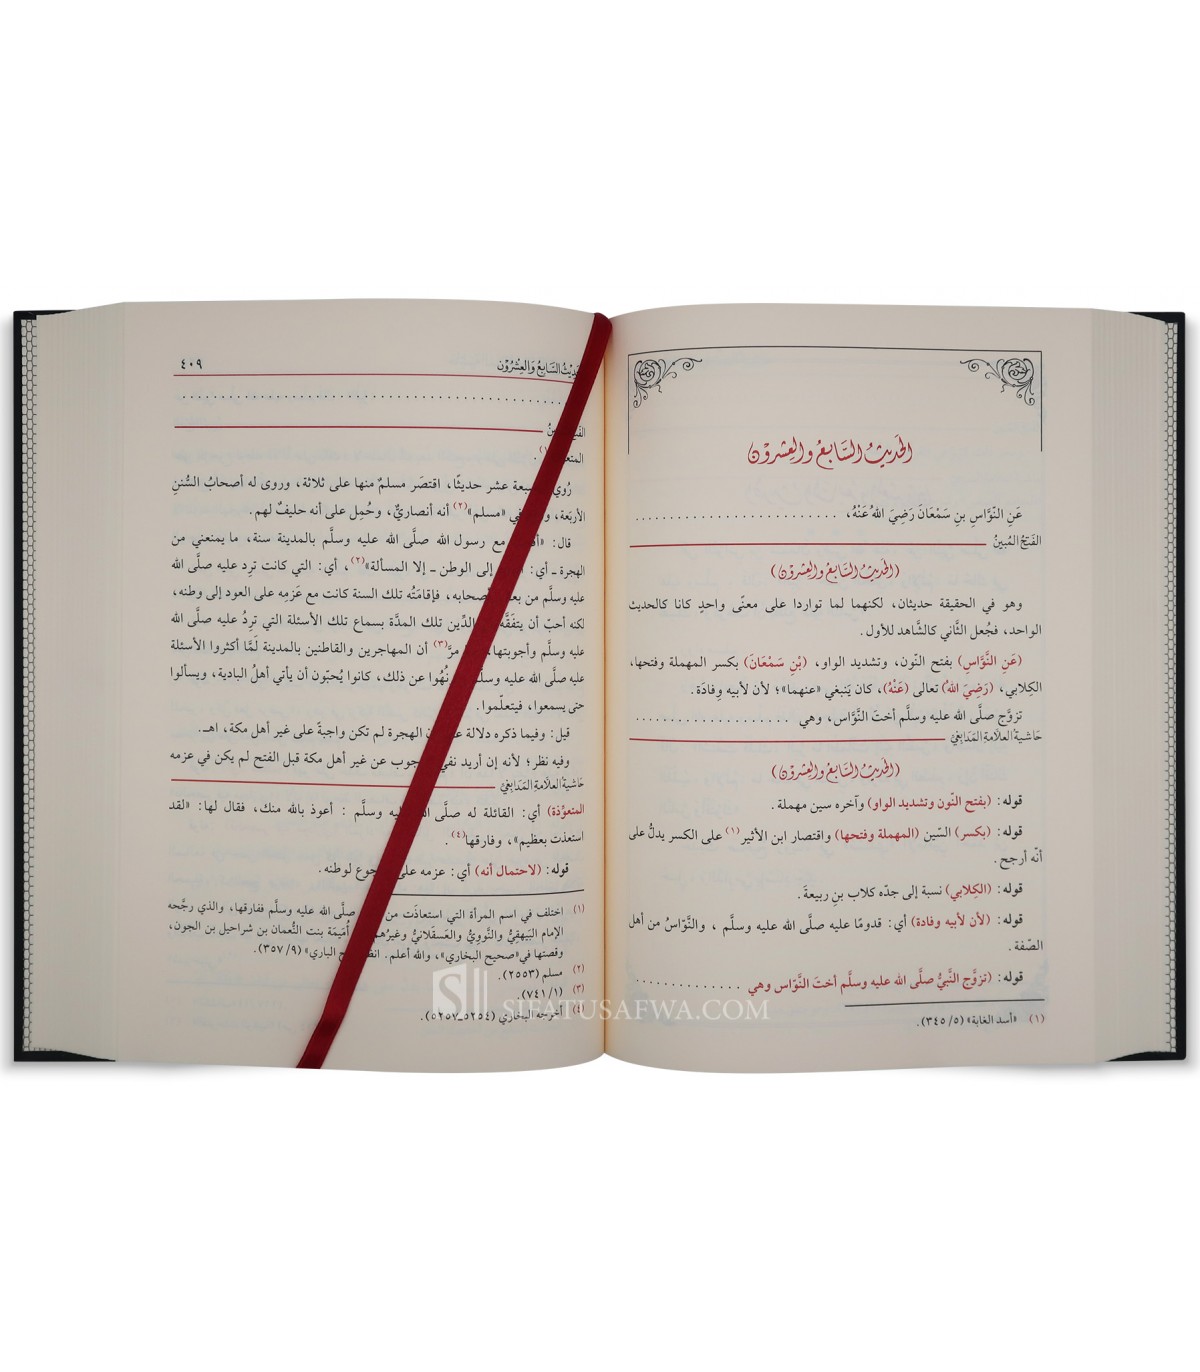 الحَديثُ السَّابعُ والعِشرون
عَنِ النَّوَّاسِ بنِ سَمْعَانَ رَضِيَ اللهُ عَنْهُ، . . . . . . . . . . . . . . . . . . . . . . . . .
الفَتْحُ المُبينُ
(الحَديثُ السَّابعُ والعِشرون)
وهو في الحقيقة حديثان، لكنهما لما تواردا على معنًى واحدٍ كانا كالحديث
الواحد، فجُعل الثَّاني كالشَّاهد للأول.
(عَنِ النَّوَّاسِ) بفتح النّون، وتشديد الواو، (بْنِ سَمْعَانَ) بكسر المهملة وفتحها،
الكِلابي، (رَضِيَ اللهُ) تعالى (عَنْهُ)، كان يَنبغي «عنهما»؛ لأن لأبيه وِفادَة.
تزوَّج صلَّى الله عليه وسلَّم أختَ النَّوَّاس، وهي . . . . . . . . . . . . . . . . . . .
حَاشيةُ العلّامةِ المَدَابِغيّ
(الحَديثُ السَّابعُ والعِشرون)
قوله: (بفتح النّون وتشديد الواو) وآخره سين مهملة.
قوله: (بكسر) السّين (المهملة وفتحها) واقتصار ابن الأثير(١) على الكسر يدلُّ على
أنّه أرجح.
قوله: (الكِلابي) نسبة إلى جدّه كلاب بن ربيعةَ.
قوله: (لأن لأبيه وفادة) أي: قدومًا عليه صلَّى الله عليه وسلَّم ، والنَّوّاسُ من أهل
الصّفة .
قوله: (تزوَّج النَّبيُّ صلَّى الله عليه وسلَّم أختَ النَّوّاس وهي . . . . . . . . . . . . .
(١) «أسد الغابة» (٥/ ٣٤٥).
السَّابعُ وَالعِشْرُوْن ٤٠٩
المتع
رُوي عشر حديثًا، اقتصَر مسلمٌ منها على ثلاثة، وروى له أصحابُ السُّننِ
الأربَعة، في «مسلم»(٢) أنه أنصاريٌّ، وحُمِل على أنه حليفٌ لهم.
قال: مع رسول الله صلَّى الله عليه وسلَّم بالمدينة سنة، ما يمنعني من
الهجرة ـ أي: إلى الوطن ـ إلا المسألة»(٢)، أي: التي كانت ترِد عليه صلَّى الله
عليه وسلَّم من أصحابه، فإقامَتُه تلك السنة كانت مع عَزمِه على العود إلى وطنه،
لكنه أحبّ أن يتفَقَّه الدِّين تلك المدَّة بسماع تلك الأسئلة التي تردُ عليه صلَّى الله
عليه وسلَّم وأجوبتها، مرَّ(٣) أن المهاجرين والقاطنين بالمدينة لَمَّا أكثروا الأسئلة
عليه صلَّى الله عليه وسلَّم نُهُوا عن ذلك، كانوا يُحبّون أن يأتي أهلُ البادية، ويسألوا
حتى يسمعوا، فيتعلَّموا.
قيل: وفيما ذكره دلالة الهجرة لم تكن واجبةً على غير أهل مكة، اهـ.
وفيه نظر؛ لأنه إن أريد نفي عن غير أهل مكة قبل الفتح لم يكن في عزمه
حَاشيةُ العلّامةِ المَدَابِغيّ
المتعوِّذة) أي: القائلة له صلَّى الله عليه وسلَّم : أعوذ بالله منك، فقال لها: «لقد
استعذت بعظيم»، وفارقها(٤).
قوله: (لاحتمال أنه) أي: عزمه على لوطنه.
(١) اختلف في اسم المرأة التي استعاذَت من صلَّى الله عليه وسلَّم ففارقها، والذي رجَّحه
الإمام البَيهقِيُّ والنَّووِيُّ والعَسقَلانيُّ وغيرُهم أُمَيمَة بنت النُّعمان بن شراحيل بن الجون،
وقصتها في«صحيح البخاري»، والله أعلم. الباري» (٩/ ٣٥٧).
(٢) مسلم (٢٥٥٣).
(٣) (١/ ٧٤١).
(٤) أخرجه البخاري (٥٢٥٤ـ٥٢٥٧).
SIFATUSAFWA.COM